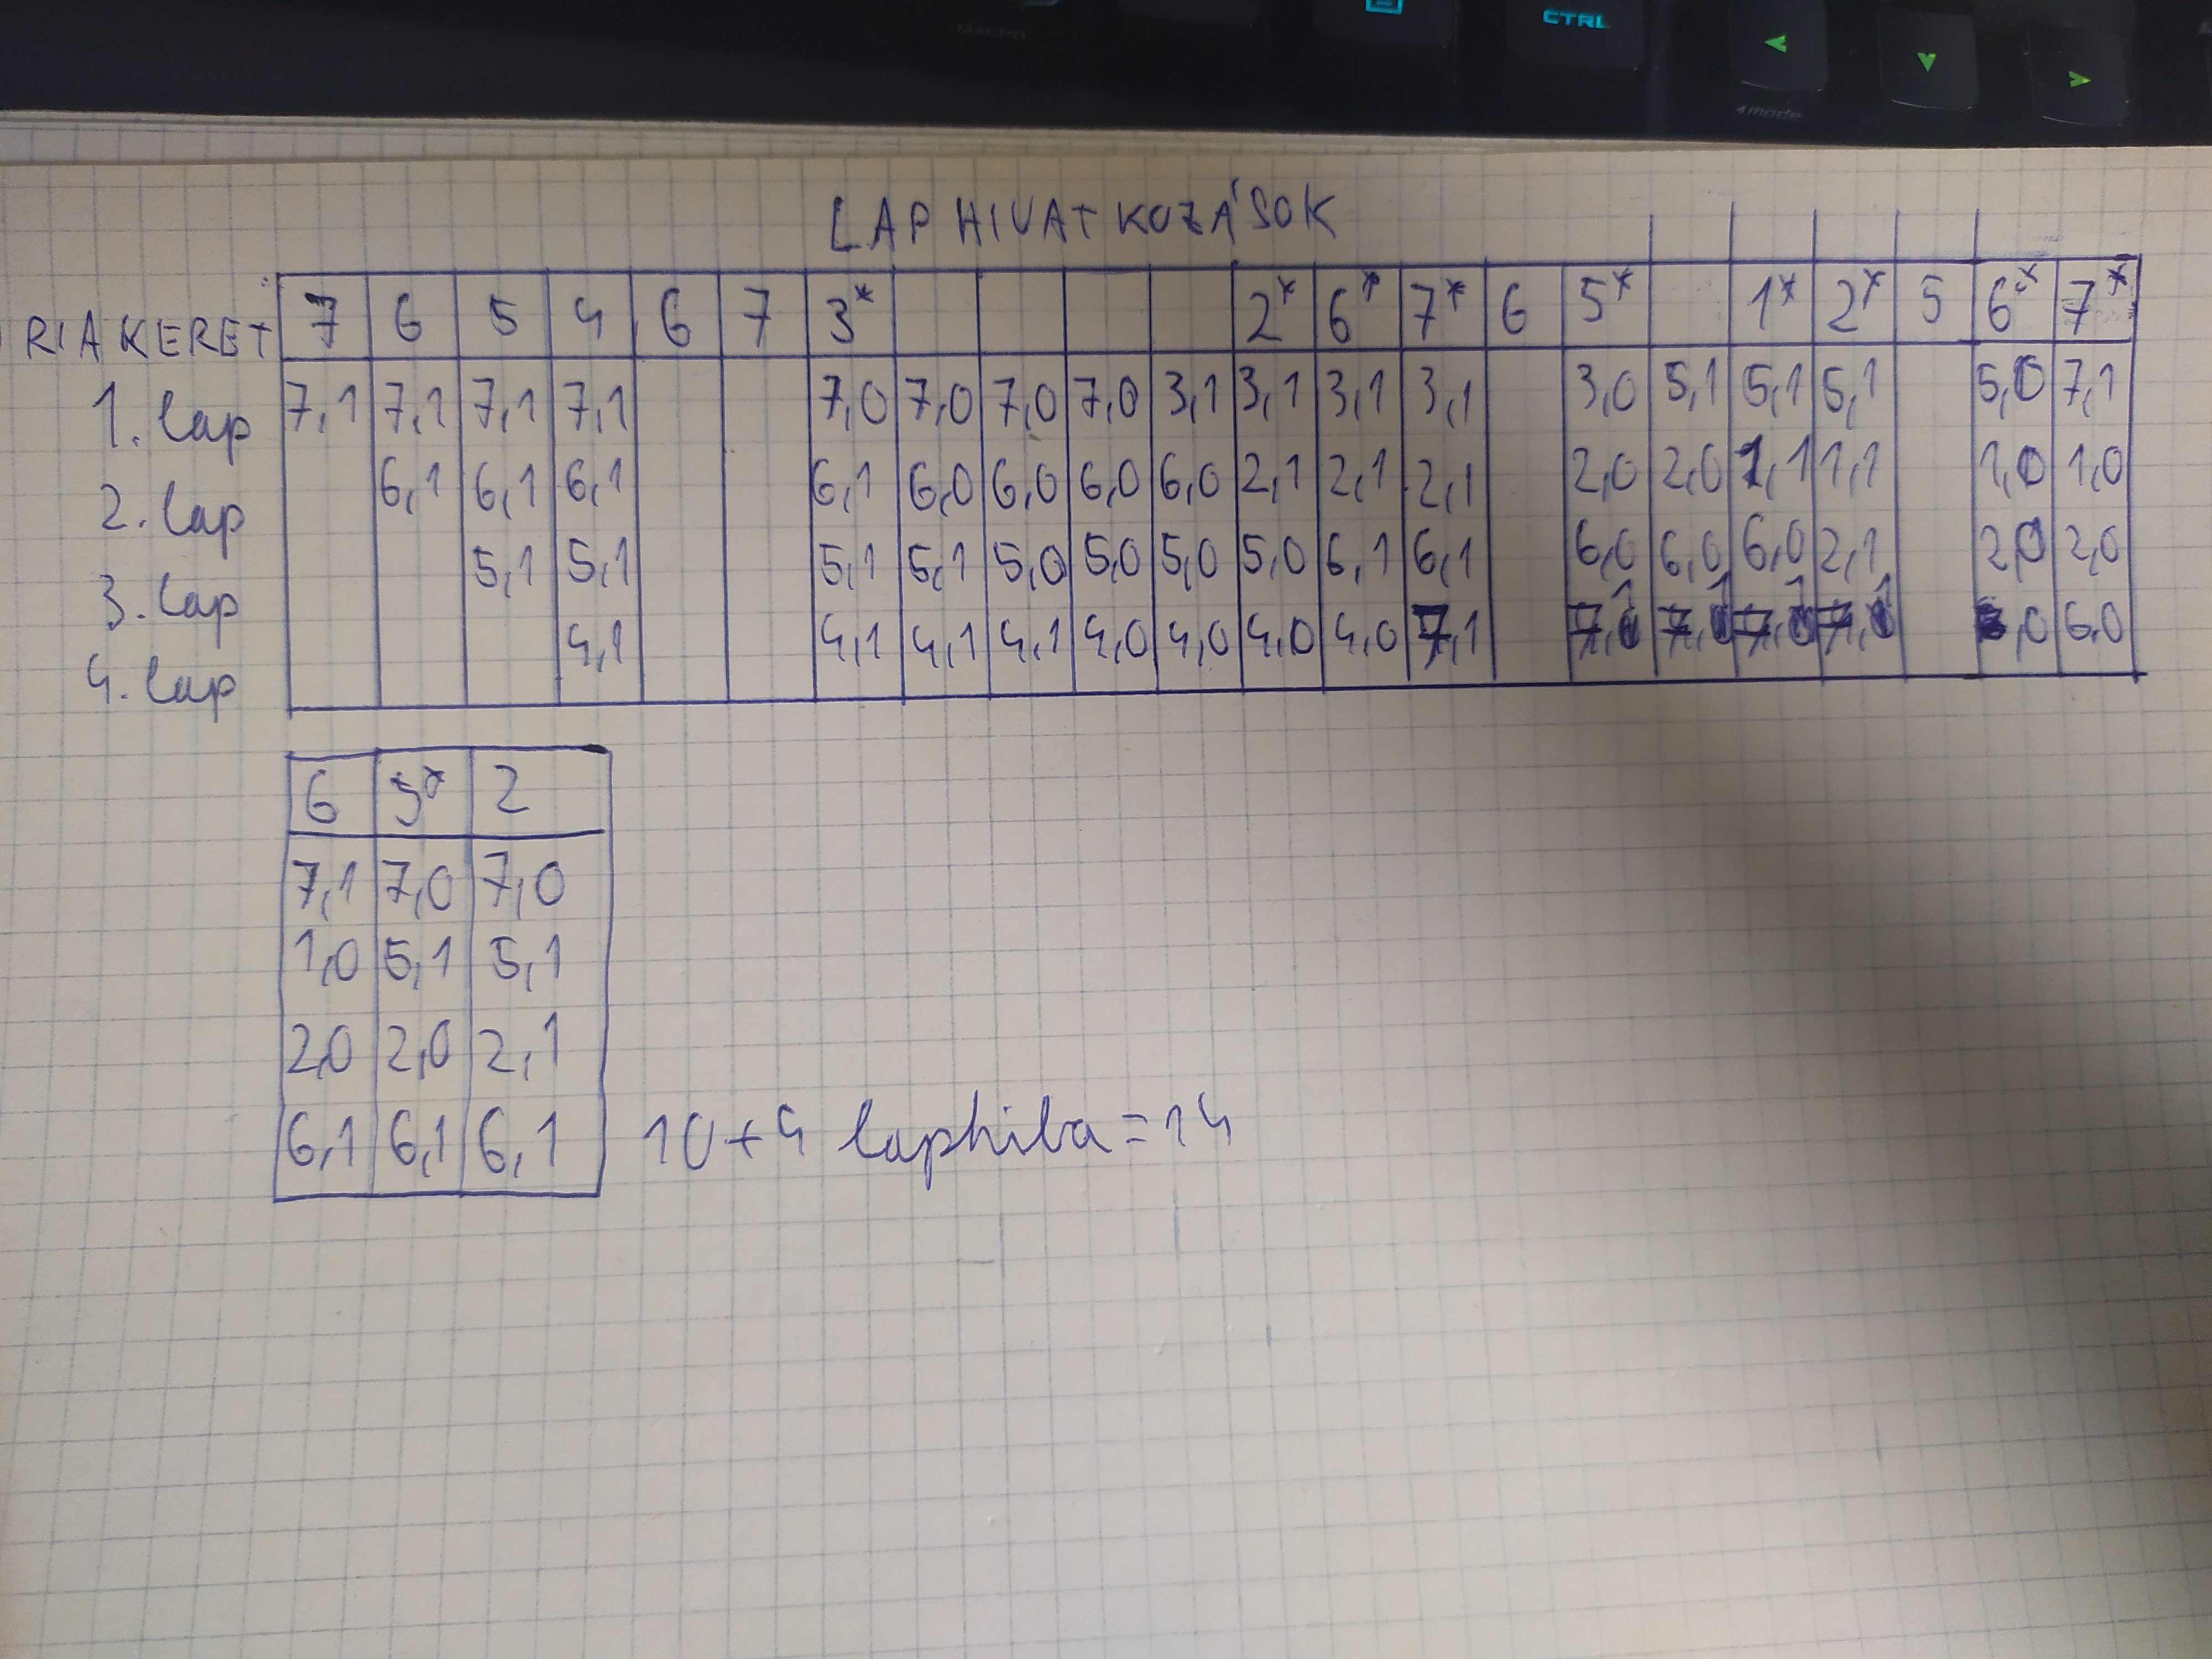 MACRO
CTRL
mode
LAP HIVATKOZÁSOK
RIA KERET 7 6 5 4 6 7 3* 2* 6* 7* 6 5* 1* 2* 5 6* 7*
1. lap 7,1 7,1 7,1 7,1 7,0 7,0 7,0 7,0 3,1 3,1 3,1 3,1 3,0 5,1 5,1 5,1 5,0 7,1
2. lap 6,1 6,1 6,1 6,1 6,0 6,0 6,0 6,0 2,1 2,1 2,1 2,0 2,0 1,1 1,1 1,0 1,0
3. lap 5,1 5,1 5,1 5,1 5,0 5,0 5,0 5,0 6,1 6,1 6,0 6,0 6,0 2,1 2,0 2,0
4. lap 4,1 4,1 4,1 4,1 4,0 4,0 4,0 4,0 7,1 7,1 7,1 7,1 7,1 ,0 6,0
6 5* 2
7,1 7,0 7,0
1,0 5,1 5,1
2,0 2,0 2,1
6,1 6,1 6,1 10+4 laphiba=14